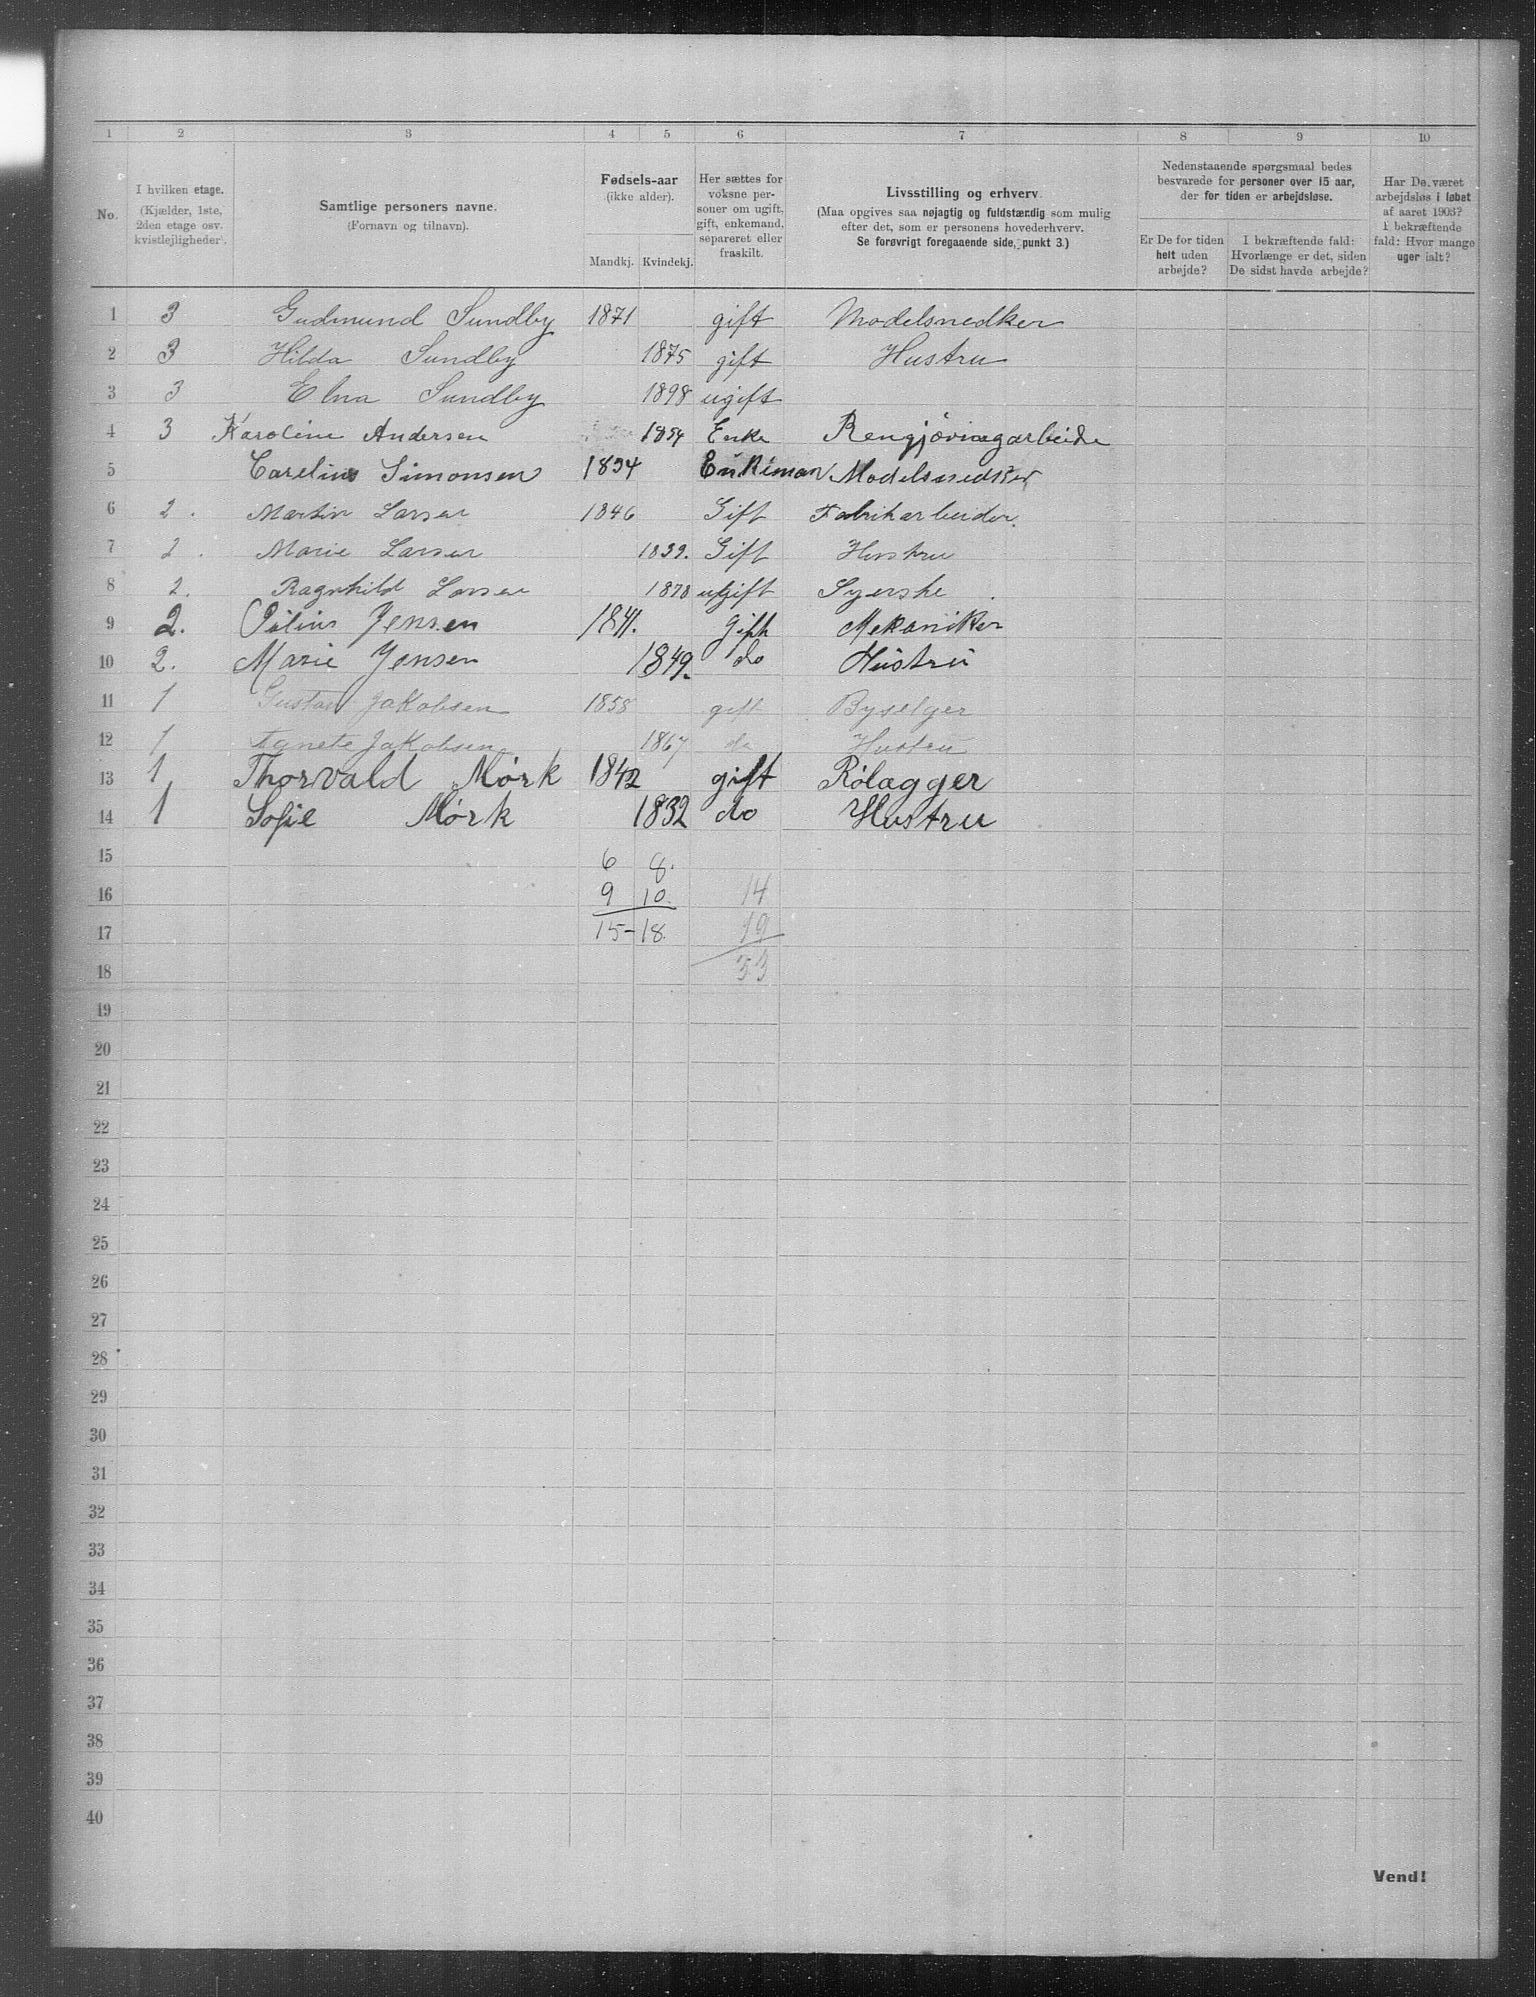 1 2 3 4 5 6 7 8 9 10
No.
I hvilken etage.
(Kjælder, 1ste,
2den etage osv.
kvistlejligheder).
Samtlige personers navne.
(Fornavn og tilnavn).
Fødsels-aar
(ikke alder).
Mandkj. Kvindekj.
Her sættes for
voksne per-
soner om ugift,
gift, enkemand,
separeret eller
fraskilt.
Livsstilling og erhverv.
(Maa opgives saa nøjagtig og fuldstændig som mulig
efter det, som er personens hovederhverv.
Se forøvrigt foregaaende side, punkt 3.)
Nedenstaaende spørgsmaal bedes
besvarede for personer over 15 aar,
der for tiden er arbejdsløse.
Er De for tiden
helt uden
arbejde?
I bekræftende fald:
Hvorlænge er det, siden
De sidst havde arbejde?
Har De været
arbejdsløs i løbet
af aaret 1905?
I bekræftende
fald: Hvor mange
uger ialt?
1 3 Gudmund Sundby 1871 gift Modelsnedker
2 3 Hilda Sundby 1875 gift Hustru
3 3 Elna Sundby 1898 ugift
4 3 Karoline Andersen 1854 Enke Rengjøringarbeide
5 Carelius Simonsen 1834 Enkeman Modelsnedker
6 2. Martin Larsen 1846 Gift Fabrikarbeider.
7 2. Marie Larsen 1839. Gift Hustru
8 2. Ragnhild Larsen 1878 ugift Syerske
9 2. Jensen 1841. Gift Mekaniker
10 2. Marie Jensen 1849. do Hustru
11 1 Gustav Jakobsen 1858 gift Byselger
12 1 Agnete Jakobsen 1867 do Hustru
13 1 Thorvald Mørk 1842 gift Rølægger
14 1 Sofie Mørk 1832 do Hustru
15 6 8.
16 9 10. 14
17 15-18. 19
18 33
19
20
21
22
23
24
25
26
27
28
29
30
31
32
33
34
35
36
37
38
39
40
Vend!